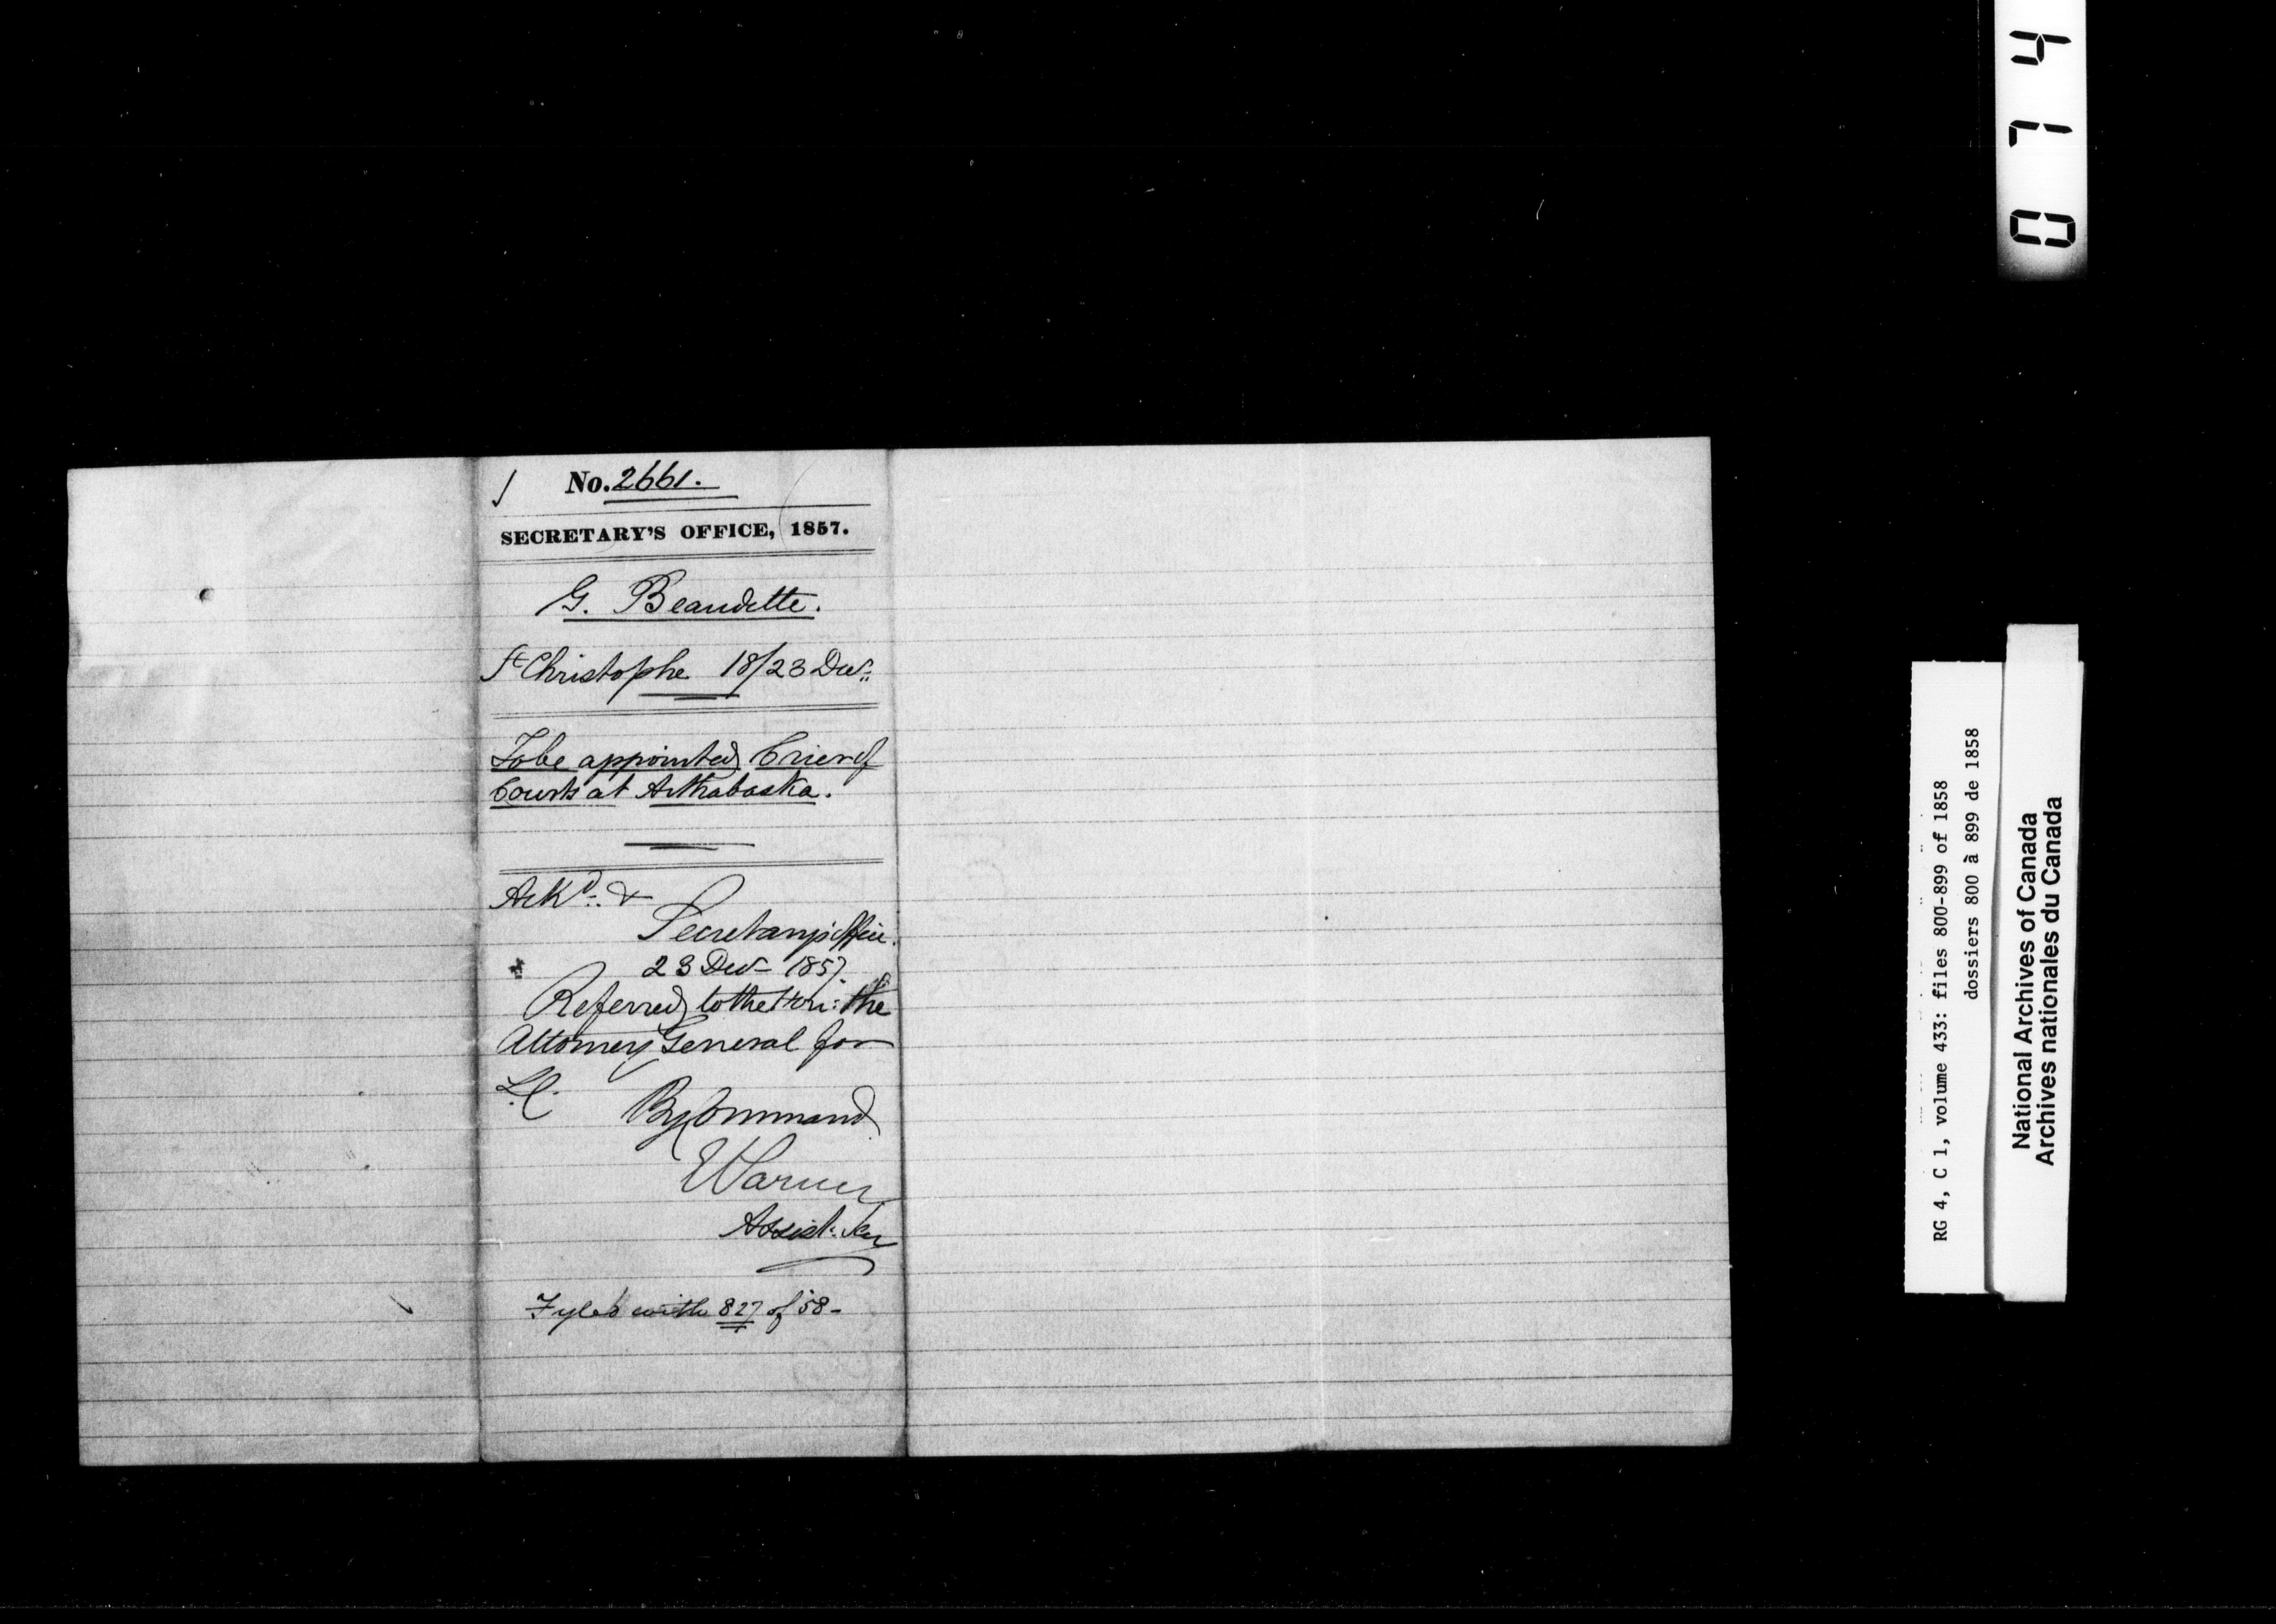 No. 2661.
SECRETARY'S OFFICE, 1857.
G. Beaudette.
St Christophe 18/23 Decr.
To be appointed Crier of
Courts at Arthabaska.
Ackd. &
Secretary's Office.
23 Decr 1857.
Referred to the Hon: the
Attorney General for
L.C.
By Command
Assist. Secy
Fyled with 827 of 58 -
0 7 4
RG 4, C 1, volume 433: files 800-899 of 1858
dossiers 800 à 899 de 1858
National Archives of Canada
Archives nationales du Canada